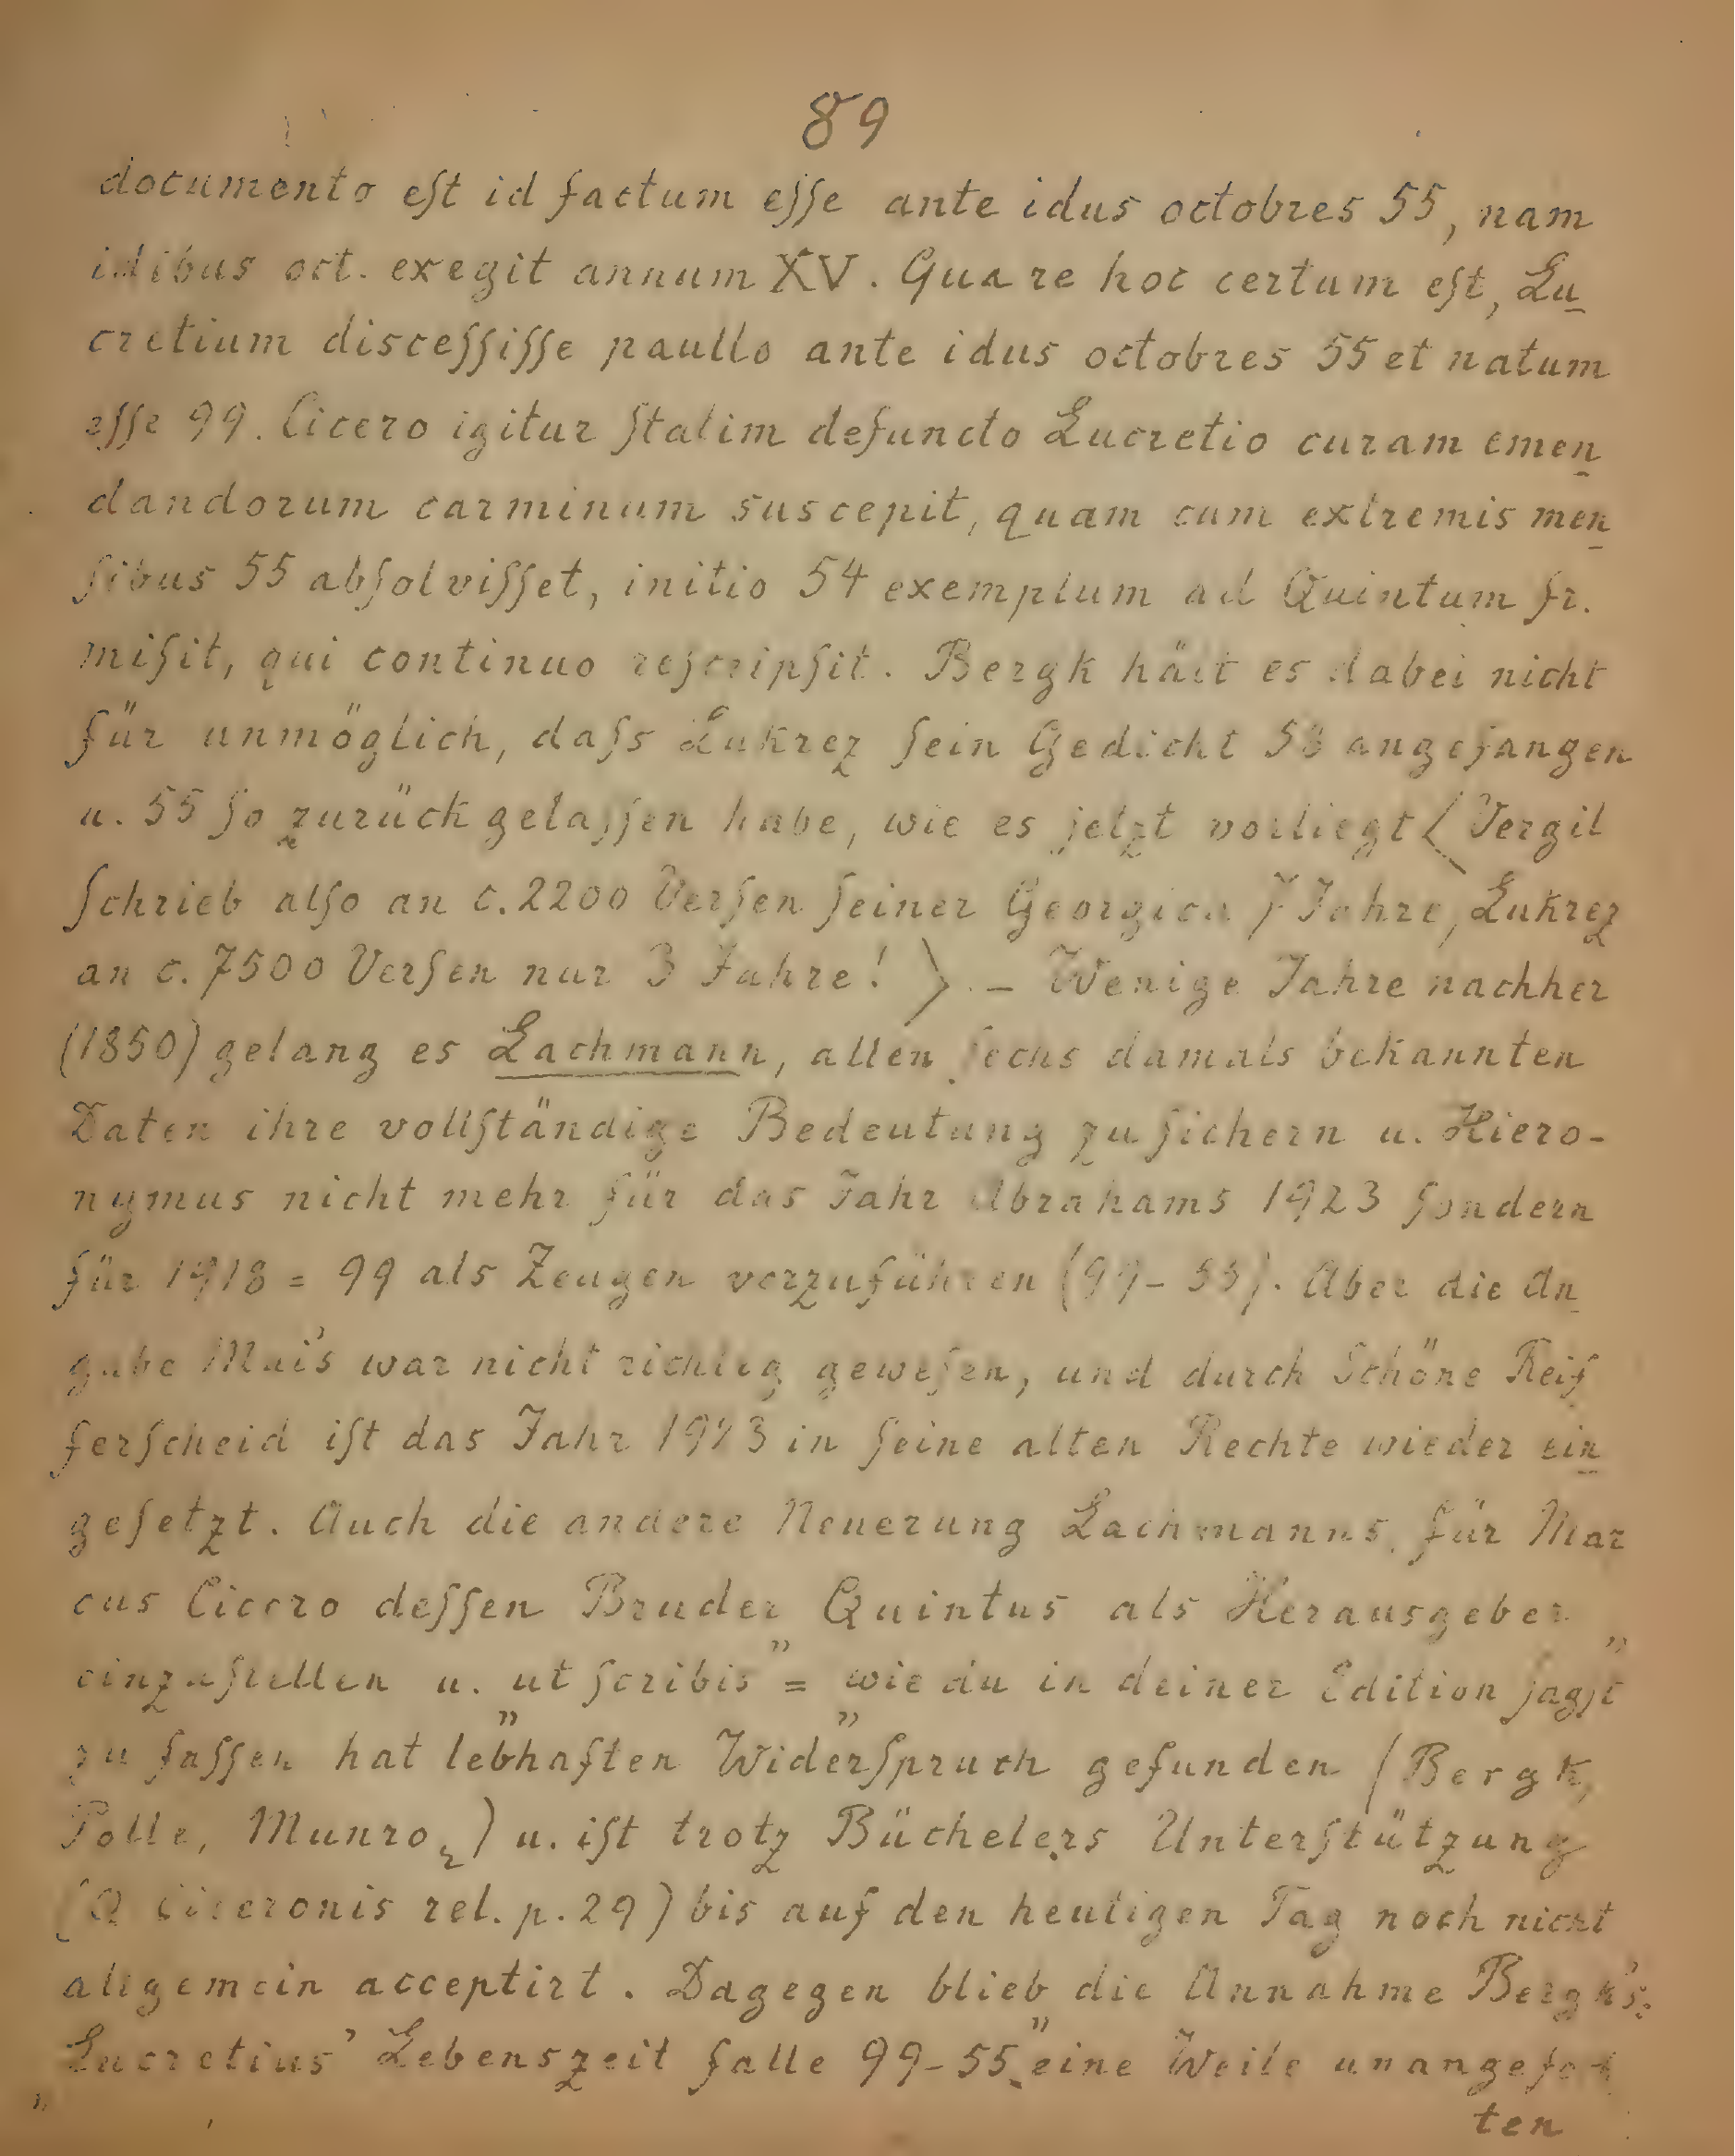 89
documento eſt id factum eſſe ante idus octobres 55, nam
idibus oct. exegit annum XV. Quare hoc certum eſt, Lu
cretium disceſſiſſe paullo ante idus octobres 55 et natum
eſſe 99. Cicero igitur ſtatim defuncto Lucretio curam emen
dandorum carminum suscepit, quam cum extremis men
ſibus 55 abſolviſſet, initio 54 exemplum ad Quintum fr.
miſit, qui continuo reſcripſit. Bergk hält es dabei nicht
für unmöglich, daſs Lukrez ſein Gedicht 58 angefangen
u. 55 ſo zurück gelaſſen habe, wie es jetzt vorliegt ⟨Vergil
ſchrieb alſo an c. 2200 Verſen ſeiner Georgica 7 Jahre, Lukrez
an c. 7500 Verſen nur 3 Jahre!⟩. – Wenige Jahre nachher
(1850) gelang es Lachmann, allen ſechs damals bekannten
Daten ihre vollſtändige Bedeutung zu ſichern u. Hiero-
nymus nicht mehr für das Jahr Abrahams 1923 ſondern
für 1918 = 99 als Zeugen vorzuführen (99–55). Aber die An
gabe Mai's war nicht richtig geweſen, und durch Schöne Reif
ferſcheid iſt das Jahr 1923 in ſeine alten Rechte wieder ein
geſetzt. Auch die andere Neuerung Lachmanns, für Mar
cus Cicero deſſen Bruder Quintus als Herausgeber
einzuſtellen u. „ut ſcribis" = „wie du in deiner Edition ſagſt"
zu faſſen hat lebhaften Widerſpruch gefunden (Bergk,
Polle, Munro,) u. iſt trotz Büchelers Unterſtützung
(Q Ciceronis rel. p. 29) bis auf den heutigen Tag noch nicht
allgemein acceptirt. Dagegen blieb die Annahme Bergk's:
„Lucretius' Lebenszeit falle 99–55" eine Weile unangefoch
ten